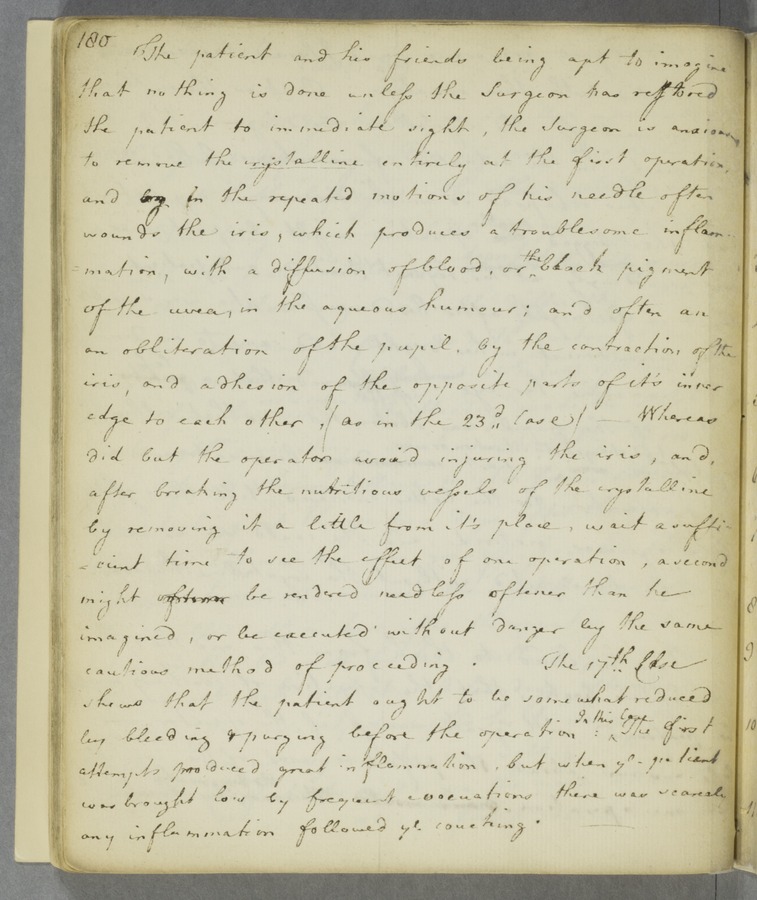 180
The patient and his friends being apt to imagine
that nothing is done unless the Surgeon has restored
the patient to immediate sight, the Surgeon is anxious
to remove the crystalline entirely at the first operation,
and by in the repeated motions of his needle often
wounds the iris, which produces a troublesome inflam-
=mation, with a diffusion of blood, or the black pigment
of the uvea, in the aqueous humour; and often an
an obliteration of the pupil, by the contraction of the
iris, and adhesion of the opposite parts of it's inner
edge to each other, (as in the 23d. Case) — Whereas
did but the operator avoid injuring the iris, and,
after breaking the nutritious vessels of the crystalline
by removing it a little from it's place, wait a suffi-
=cient time to see the effect of one operation, a second
might be rendered needless oftener than he
imagined, or be executed without danger by the same
cautious method of proceeding. The 17th Case
shews that the patient ought to be somewhat reduced
by bleeding & purging before the operation: In this Case The first
attempts produced great inflammation, but when ye patient
was brought low by frequent evacuations there was scarcely
any inflammation followed ye couching.